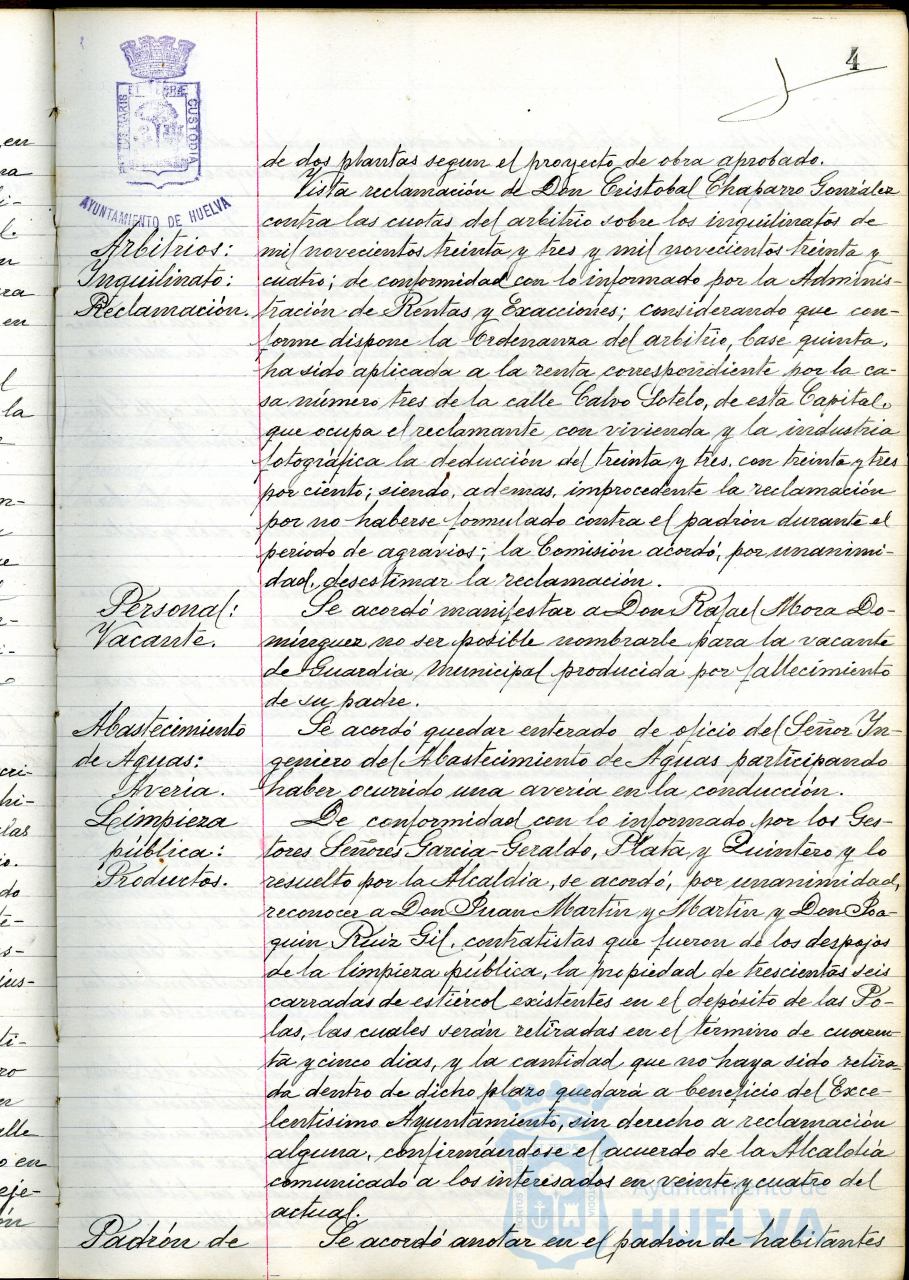 4
PORTUS MARIS ET TERRÆ CUSTODIA
AYUNTAMIENTO DE HUELVA
de dos plantas segun el proyecto de obra aprobado.
Vista reclamación de Don Cristobal Chaparro González
contra las cuotas del arbitrio sobre los inquilinatos de
Arbitrios:
mil novecientos treinta y tres y mil novecientos treinta y
Inquilinato:
cuatro; de conformidad con lo informado por la Adminis-
Reclamación.
tración de Rentas y Exacciones; considerando que con-
forme dispone la Ordenanza del arbitrio, base quinta,
ha sido aplicada a la renta correspondiente por la ca-
sa número tres de la calle Calvo Sotelo, de esta Capital,
que ocupa el reclamante con vivienda y la industria
fotográfica la deducción del treinta y tres, con treinta y tres
por ciento; siendo, ademas, improcedente la reclamación
por no haberse formulado contra el padrón durante el
período de agravios; la Comisión acordó, por unanimi-
dad, desestimar la reclamación.
Personal:
Se acordó manifestar a Don Rafael Mora Do-
Vacante.
mínguez no ser posible nombrarle para la vacante
de Guardia Municipal producida por fallecimiento
de su padre.
Abastecimiento
Se acordó quedar enterado de oficio del Señor In-
de Aguas:
geniero del Abastecimiento de Aguas participando
Avería.
haber ocurrido una avería en la conducción.
Limpieza
De conformidad con lo informado por los Ges-
pública:
tores Señores Garcia-Geraldo, Plata y Quintero y lo
Productos.
resuelto por la Alcaldía, se acordó, por unanimidad,
reconocer a Don Juan Martín y Martín y Don Joa-
quin Ruiz Gil, contratistas que fueron de los despojos
de la limpieza pública, la propiedad de trescientas seis
carradas de estiércol existentes en el depósito de las Po-
las, las cuales serán retiradas en el término de cuaren-
ta y cinco dias, y la cantidad que no haya sido retira-
da dentro de dicho plazo quedará a beneficio del Exce-
lentísimo Ayuntamiento, sin derecho a reclamación
alguna, confirmándose el acuerdo de la Alcaldía
comunicado a los interesados en veinte y cuatro del
actual.
Padrón de
Se acordó anotar en el padron de habitantes
Ayuntamiento de
HUELVA